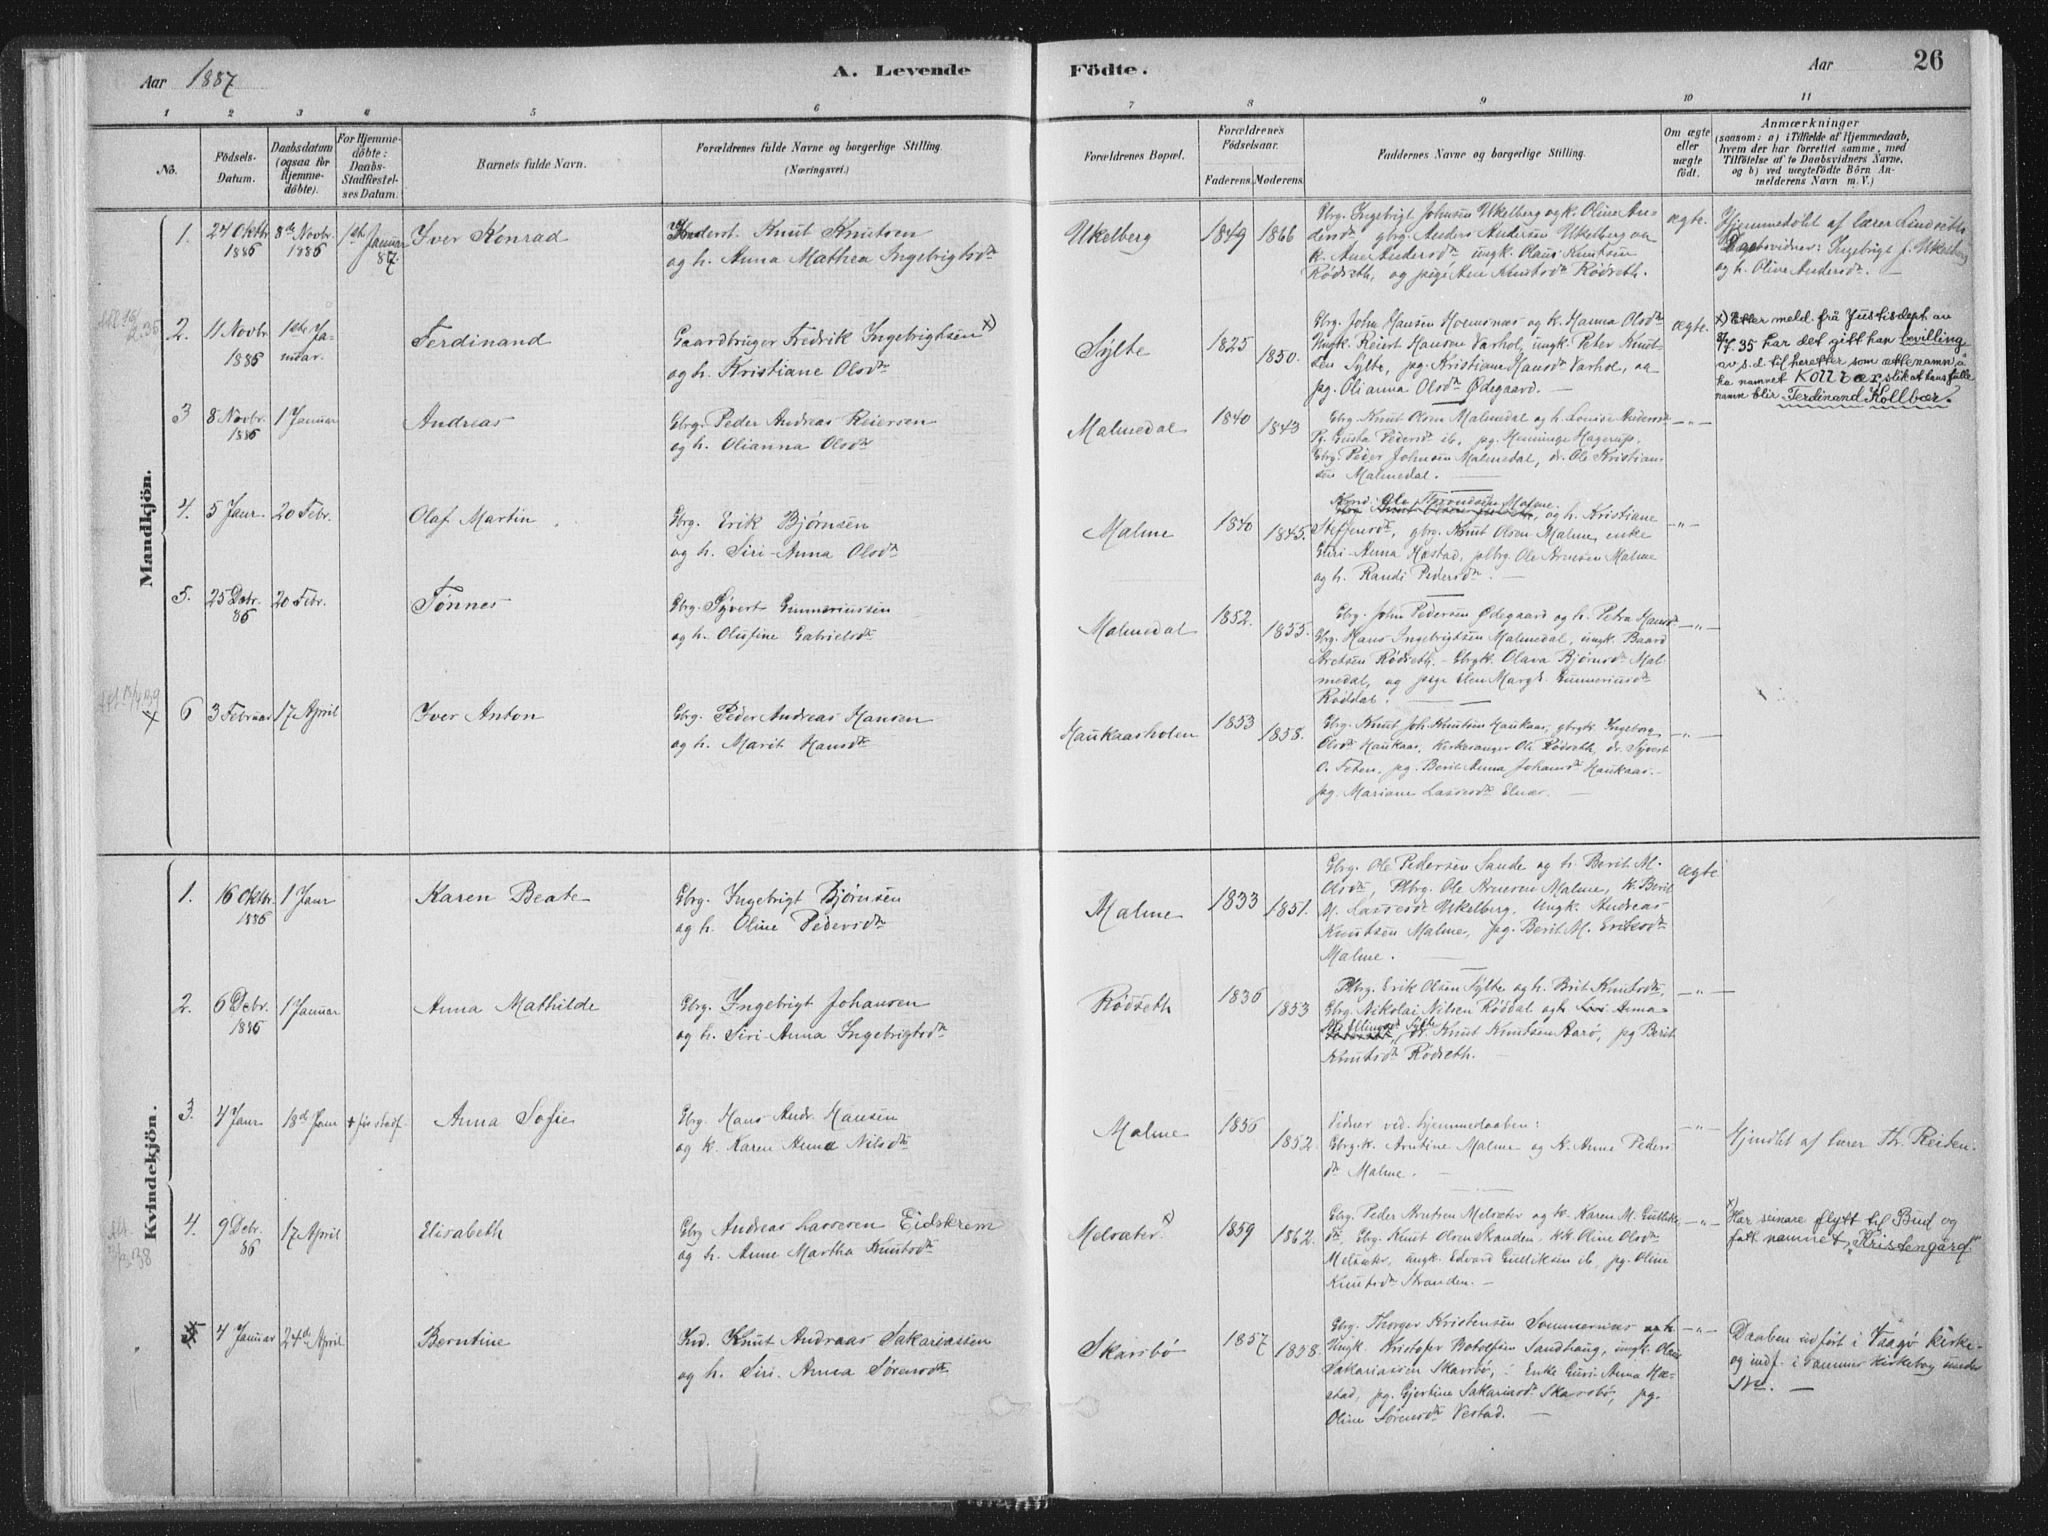 Aar 1887
A. Levende
Födte.
Aar
26
1 2 3 4 5 6 7 8 9 10 11
No.
Födsels-Datum.
Daabsdatum (ogsaa for Hjemmedöbte).
For Hjemmedöbte: Daabs-Stadfæstelses Datum.
Barnets fulde Navn.
Forældrenes fulde Navne og borgerlige Stilling. (Næringsvei.)
Forældrenes Bopæl.
Forældrenes Födselsaar.
Faderens. Moderens.
Faddernes Navne og borgerlige Stilling.
Om ægte eller uægte födt.
Anmærkninger
(saasom: a) i Tilfælde af Hjemmedaab,
hvem der har forrettet samme, med
Tilföielse af to Daabsvidners Navne,
og b) ved uægtefödte Börn An-
melderens Navn m. V.)
Mandkjön.
1. 24 Oktbr 1886 8de Novbr. 1886 1ste Januar 87. Iver Konrad
Knut Knutsen
og h. Anna Mathea Ingebrigtsdtr
Ukelberg 1849 1866
Gbrg. Ingebrigt Johnsen Ukelberg og k. Oline An-
dersdtr gbrg. Anders Andersen Ukelberg og
k. Ane Andersdtr ungk. Olaus Knutsen
Rödseth, og pige Ane Knutsdtr Rödseth.
ægte.
Hjemmedöbt af lærer Lindseth
Daabsvidner: Ingebrigt J. Ukelberg
og h. Oline Andersdtr. —
2. 11 Novbr. 1886 1ste Januar. Ferdinand
Gaardbruger Fredrik Ingebrigtsen x)
og h. Kristiane Olsdtr
Sylte 1825 1850.
Gbrg. John Hansen Moensnæs og k. Hanna Olsdtr
Ungk. Reiert Hansen Varhol, ungk. Peter Knut-
sen Sylte, pg. Kristiane Hansdtr Varhol, og
pg. Olianna Olsdtr Ødegaard. —
ægte.
x) Etter meld. frå Justisdept av
7/7. 35 har det gitt han bevilling
av s.d. til heretter som ættenamn å
ta namnet Kollbær, slik at hans fulle
namn blir Ferdinand Kollbær.
3 8 Novbr. 1886 1 Januar Andreas
Gbrg. Peder Andreas Reiersen
og h. Olianna Olsdtr
Malmedal 1840 1843
Gbrg. Knut Olsen Malmedal og h. Lovise Andersdtr
Pg. Gusta Pedersdtr ib, pg. Henninge Hagerup,
Gbrg. Peder Johnsen Malmedal, dr. Ole Kristian-
sen Malmedal. —
— „ —
4. 5 Janr 20 Febr. Olaf Martin
Gbrg. Erik Bjørnsen
og h. Siri-Anna Olsdtr
Malme 1840 1845.
Ole Trondsen Malme
og h. Kristiane
Steffensdtr, gbrg. Knut Olsen Malme, enke
Guri-Anna Hæstad, plbrg. Ole Arnesen Malme
og h. Randi Pedersdtr. —
— „ —
5. 25 Debr. 86 20 Febr. Tønnes
Gbrg. Syvert Gunneriussen
og h. Olufine Gabrielsdtr
Malmedal 1852. 1855.
Gbrg. John Pedersen Ødegaard og h. Petra Hansdtr
Gbrg. Hans Ingebrigtsen Malmedal, ungk. Baard
Aretsen Rödseth. — Gbrgk. Olava Bjørnsdtr Mal-
medal, og pige Elen Margt. Gunneriusdtr
Röddal. —
— „ —
6 3 Februar 17 April Iver Anton
Gbrg. Peder Andreas Hansen
og h. Marit Hansdtr
Haukaasholen 1853 1858.
Gbrg. Knut Joh. Knutsen Haukaas, gbrgk. Ingeborg
Olsdtr Haukaas, Kirkesanger Ole Rödseth, dr. Syvert
O. Teten, pg. Berit Anna Johansdtr Haukaas. —
pg. Mariane Lassesdtr Elnæs. —
— „ —
Kvindekjön.
1. 16 Oktbr. 1886 1 Janr Karen Beate
Gbrg. Ingebrigt Bjørnsen
og h. Oline Pedersdtr
Malme 1833 1851.
Gbrg. Ole Pedersen Sande og h. Berit M.
Olsdtr, Plbrg. Ole Arnesen Malme, k. Berit
M. Lassesdtr Ukelberg. Ungk. Andreas
Knutsen Malme, pg. Berit M. Eriksdtr
Malme. —
ægte
2. 6 Debr. 1886 1 Januar Anna Mathilde
Gbrg. Ingebrigt Johansen
og h. Siri-Anna Ingebrigtsdtr
Rödseth 1836 1853
Plbrg. Erik Olsen Sylte og h. Brit Knutsdtr,
Gbrg. Nikolai Nilsen Röddal og h. Siri Anna
dr. Knut Knutsen Rarö, pg Berit
Knutsdtr Rödseth.
— „ —
3. 4 Janr 18de Janr + før stadf. Anna Sofie
Gbrg. Hans Andr. Hansen
og k. Karen Anna Nilsdtr
Malme 1856 1852.
Vidner ved hjemmedaaben:
Gbrg.k. Arntine Malme og K. Anne Peders-
dtr Malme. —
— „ —
Hjmdbt af lærer Th. Reiten.
4. 9 Debr. 86 17 April Elisabeth
Gbrg Andreas Lassesen Eidskrem
og h. Anne Martha Knutsdtr
Melsæter x) 1859 1862.
Gbrg. Peder Knutsen Melsæter og k. Karen M. Gulliks-
dtr, Gbrg. Knut Olsen Stranden, kk Oline Olsdtr
Melsæter, ungk. Edvard Gulliksen ib, pg. Oline
Knutsdtr Stranden. —
— „ —
x) Har seinare flytt til Bud og
fått namnet „Kristengård".
4 Januar 24de April Berntine
Ind. Knut Andreas Sakariassen
og h. Siri-Anna Sørensdtr
Skarsbö 1857 1858.
Gbrg. Thorger Kristensen Sommernæs og h.
Ungk. Kristofer Botolfsen Sandhaug, ungk. Olaus
Sakariassen Skarsbö, Enke Guri Anna Hæ-
stad, pg. Gjertine Sakariasdtr Skarsbö, pg.
Oline Sørensdtr Vestad. —
— „ —
Daaben udført i Vaagø kirke
og indf. i sammes kirkebog under
No. —